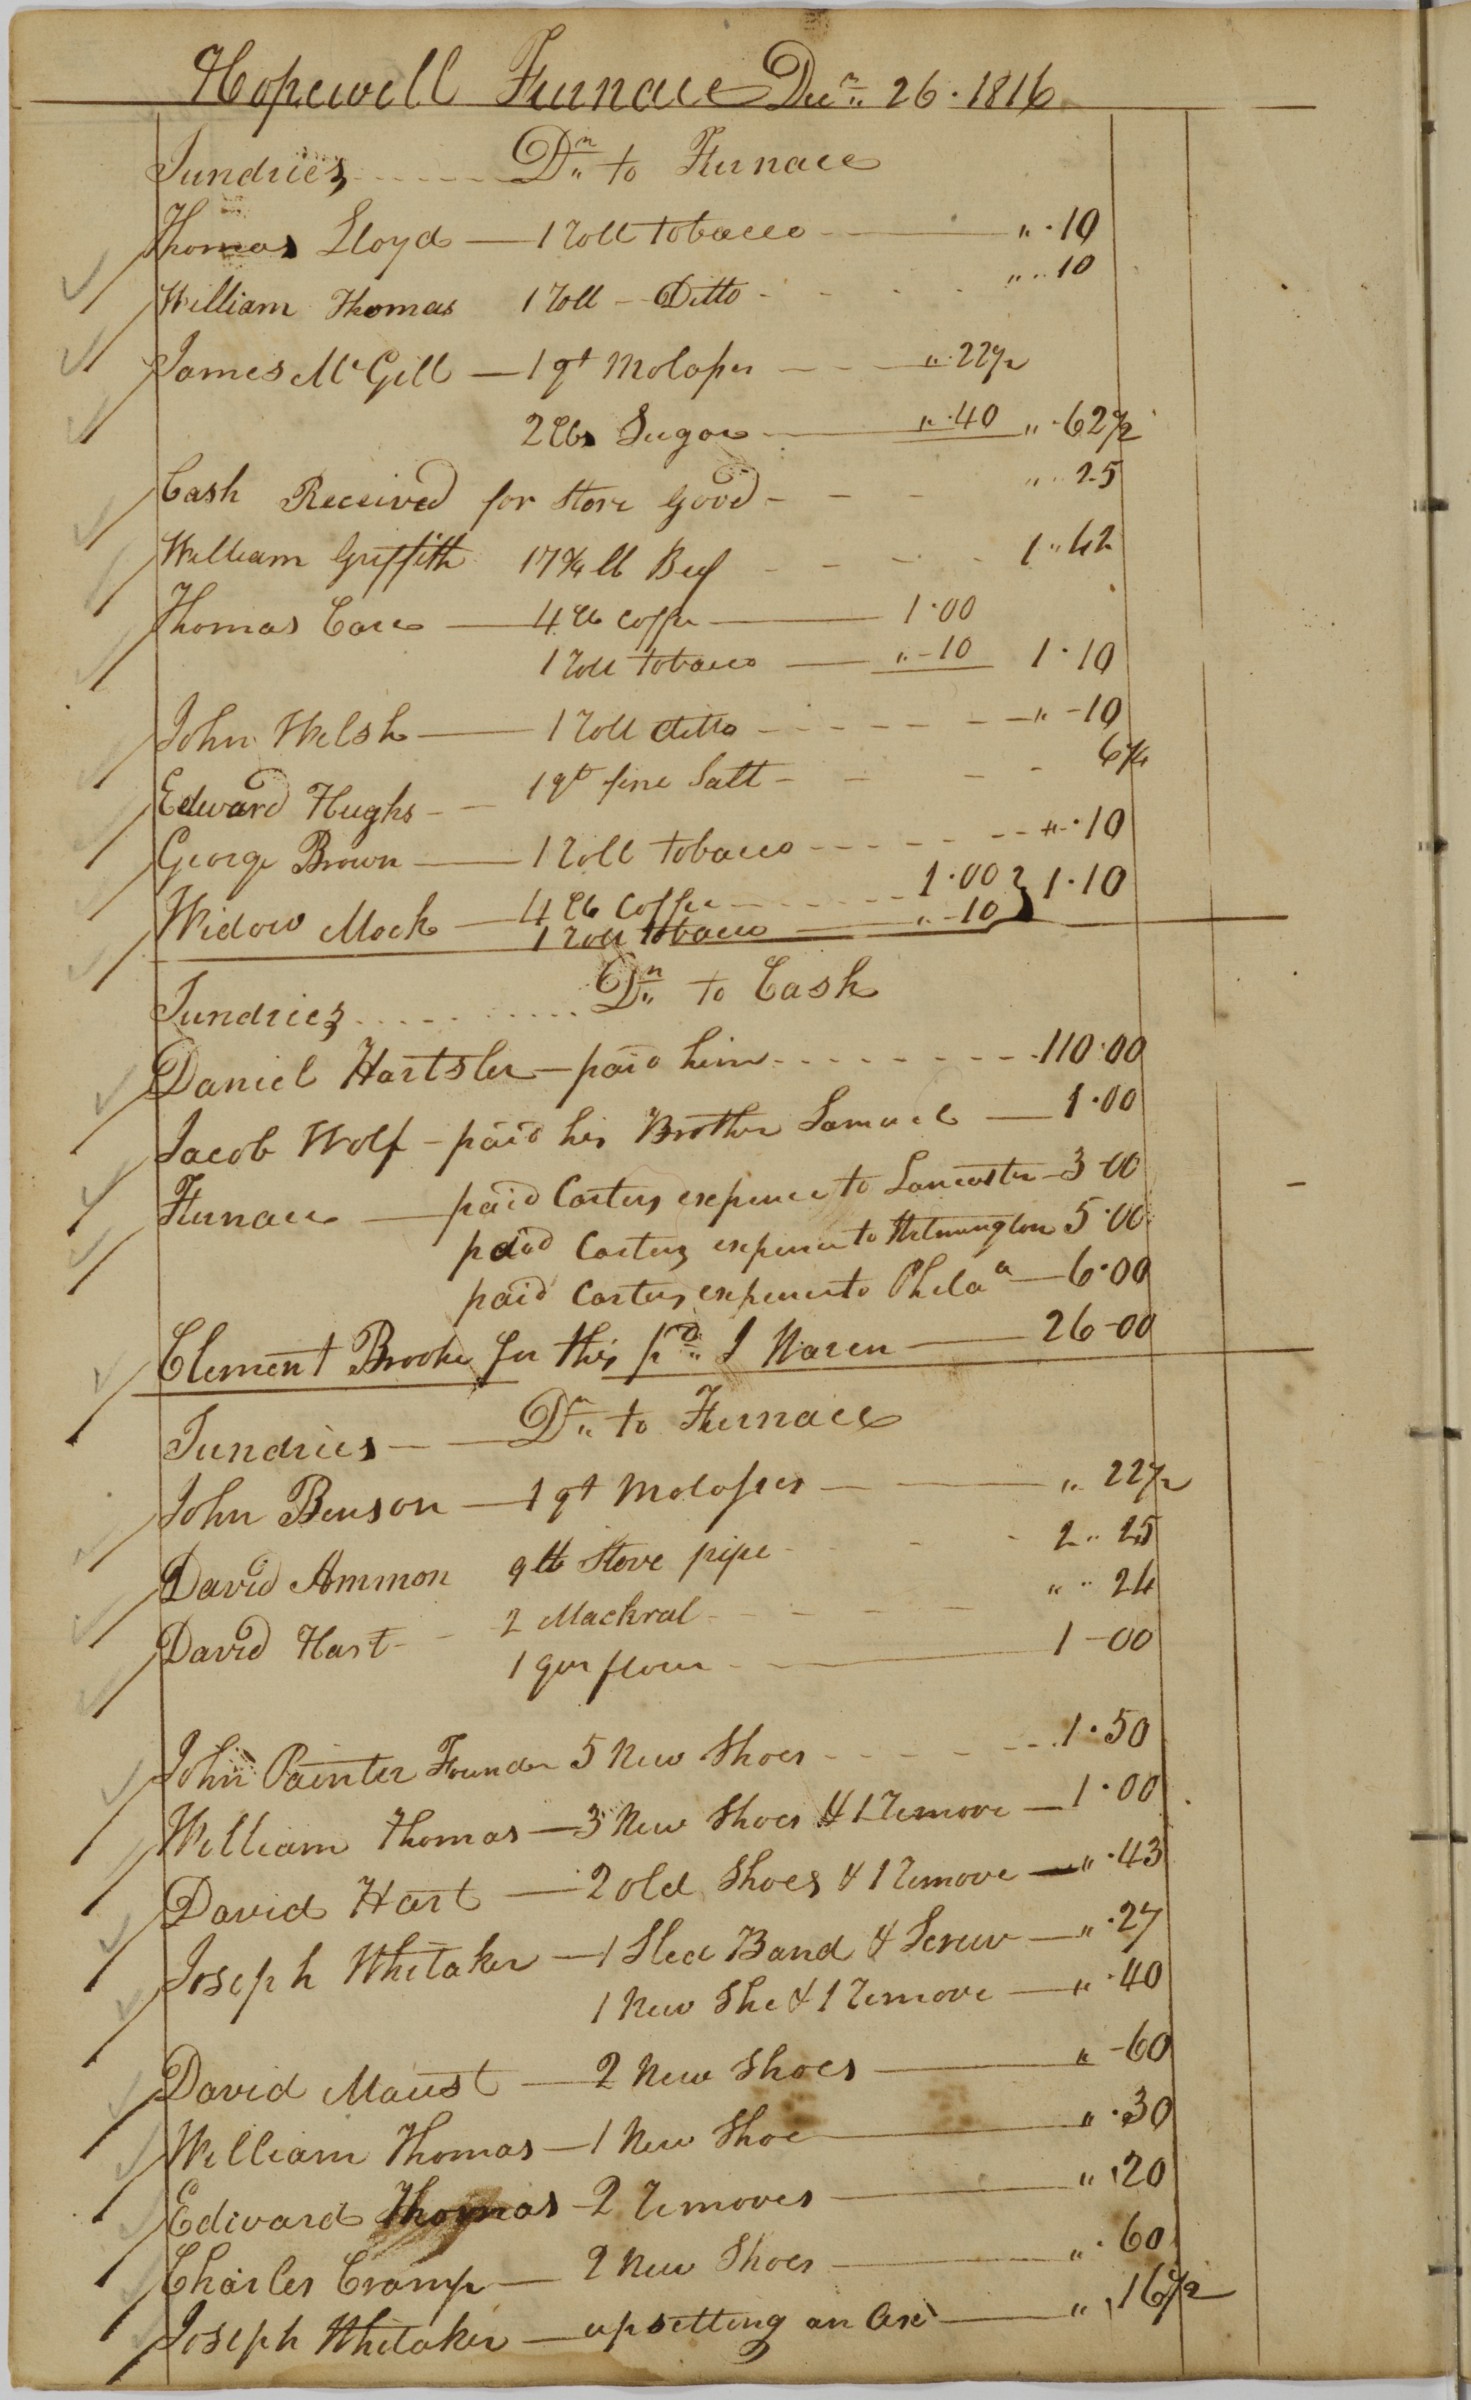 Hopewell Furnace Decr 26. 1816
Sundries Dr to Furnace
Thomas Lloyd — 1 roll tobacco — " . 10
William Thomas 1 roll - Ditto - " .. 10
James McGill — 1 qt Molasses — " . 22½
2 lbs Sugar — " . 40 " . 62½
Cash Received for Store Good - " . 25
William Griffith 17¾ lb Beef - 1 " 42
Thomas Care — 4 lb Coffe — 1.00
1 roll tobacco — " - 10 1.10
John Welsh — 1 roll ditto - " - 10
Edward Hughs - 1 qt fine Salt - 6¼
George Brown — 1 roll tobacco - " . 10
Widow Mock — 4 lb Coffe - 1.00 } 1.10
1 roll tobacco — " - 10
Sundries Dr to Cash
Daniel Hartsler — paid him - 110.00
Jacob Wolf - paid his Brother Samuel — 1.00
Furnace — paid Carters expence to Lancaster - 3-00
paid Carters expence to Wilmington 5.00
paid Carters expence to Philaa — 6.00
Clement Brooke for this pd I Waren — 26-00
Sundries — Dr to Furnace
John Benson — 1 qt Molasses — " 22½
David Ammon 9 lb Stove pipe - 2 .. 25
David Hart - 2 Mackral - " .. 24
1 qur flour - 1-00
John Painter Founder 5 New Shoes - 1.50
William Thomas — 3 New Shoes & 1 remove — 1.00
David Hart — 2 old Shoes & 1 remove — " . 43
Joseph Whitaker — 1 Sled Band & Screw — " . 27
1 New Sho & 1 remove — " . 40
David Maust — 2 New Shoes — " - 60
William Thomas — 1 New Shoe — " . 30
Edward Thomas - 2 removes — " . 20
Charles Cramp — 2 New Shoes — " . 60
Joseph Whitaker — upsetting an Axe — " . 16½